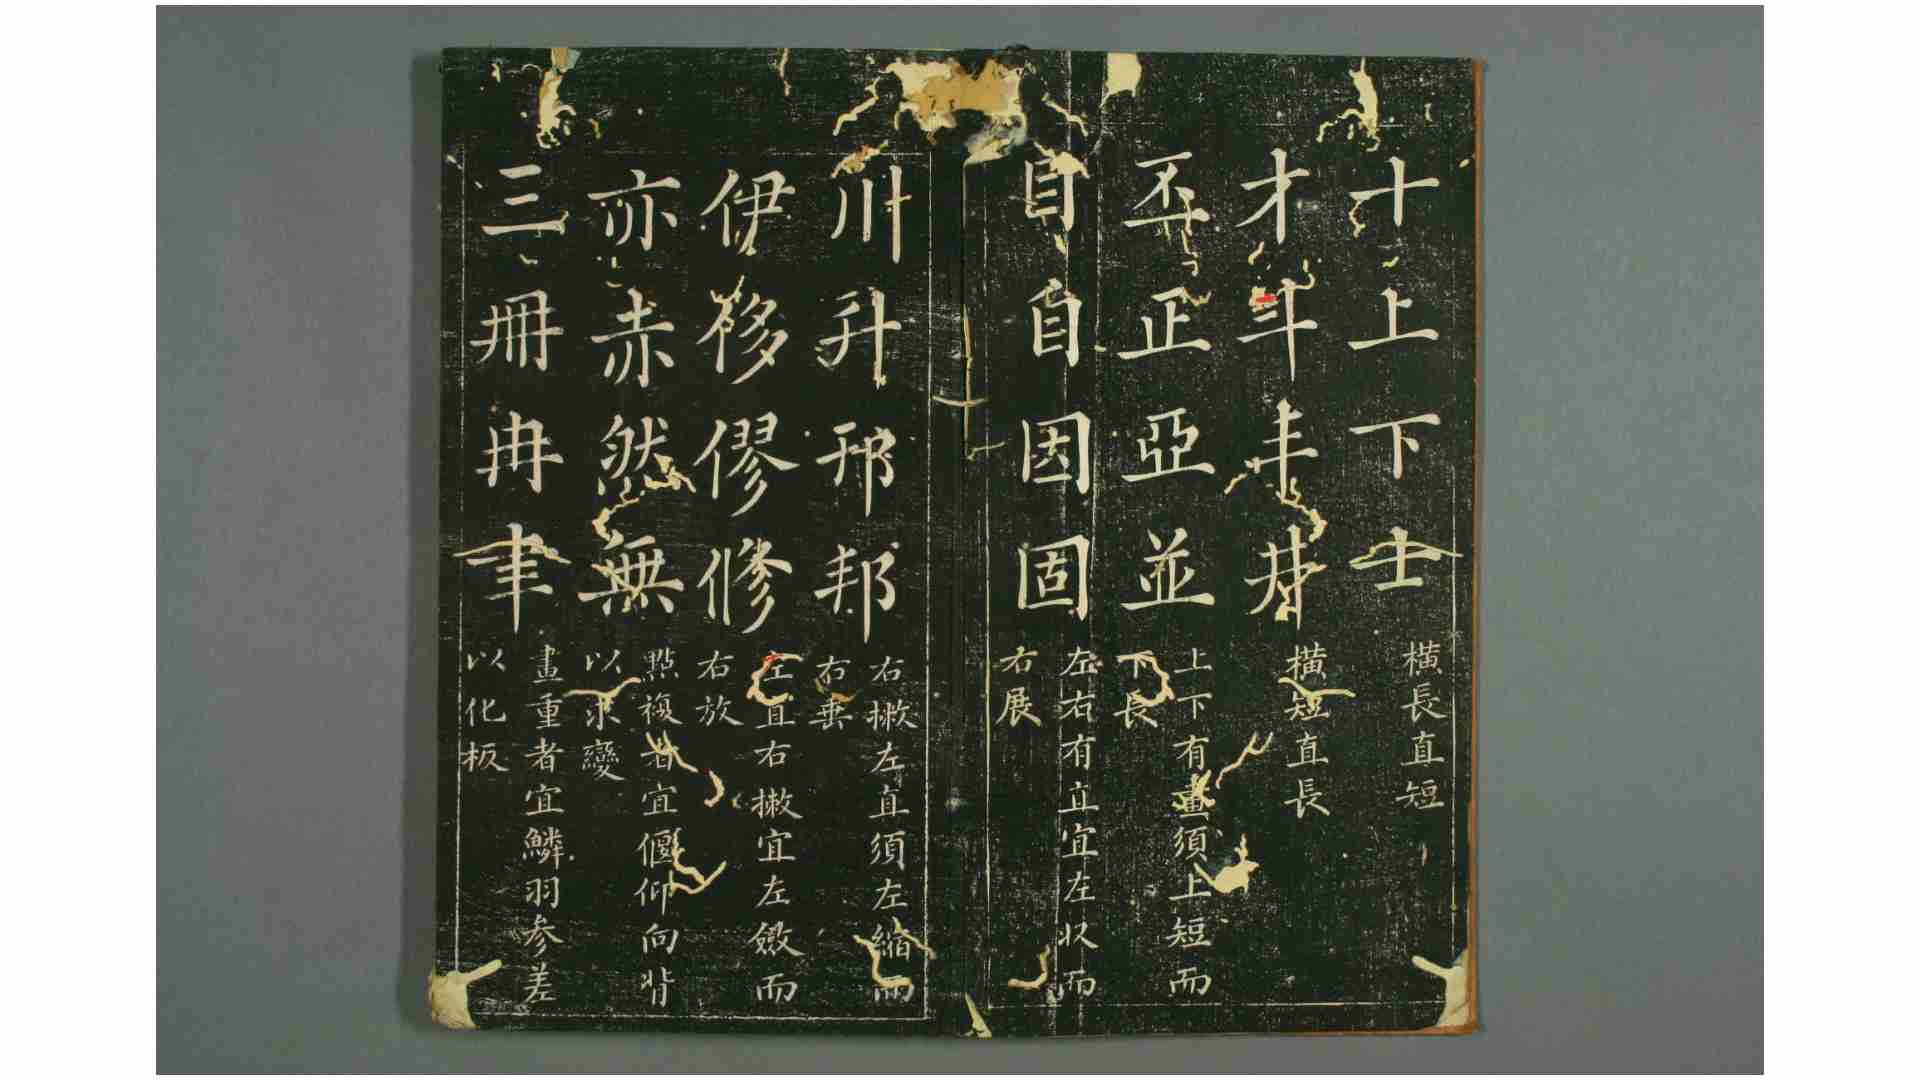 十上下士
橫長直短
才斗丰井
橫短直長
丕正亞並
上下有畫須上短而
下長
目自因固
左右有直宜左收而
右展
川升邢邦
右撇左直須左縮而
右垂
伊移僇修
左直右撇宜左斂而
右放
亦赤然無
點複者宜偃仰向背
以求變
三冊冉聿
畫重者宜鱗羽参差
以化板